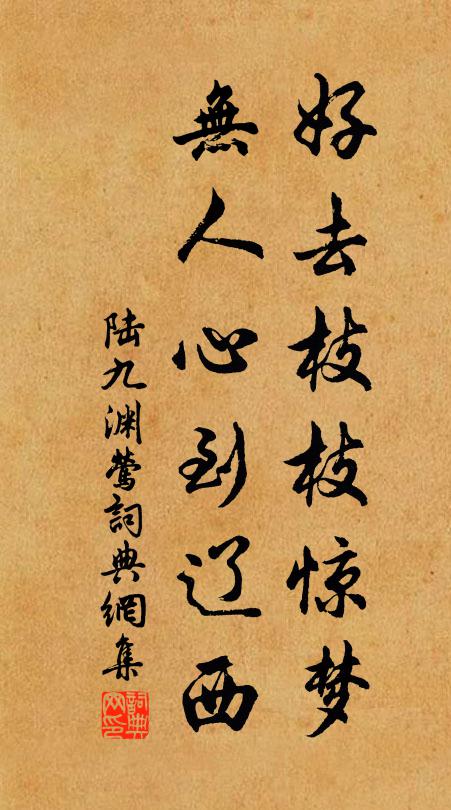 好去枝枝惊梦
無人心到辽西
陆九渊莺詞典網集
詞典网印